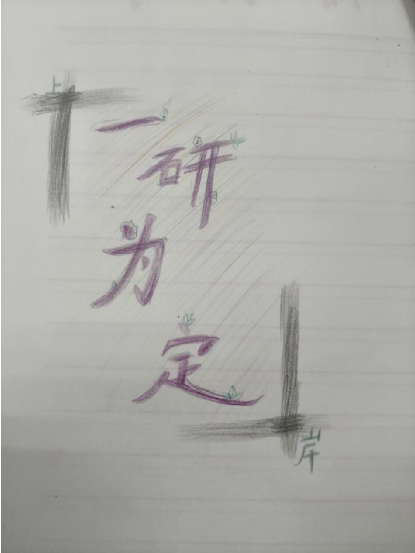 上
一
研
为
定
岸